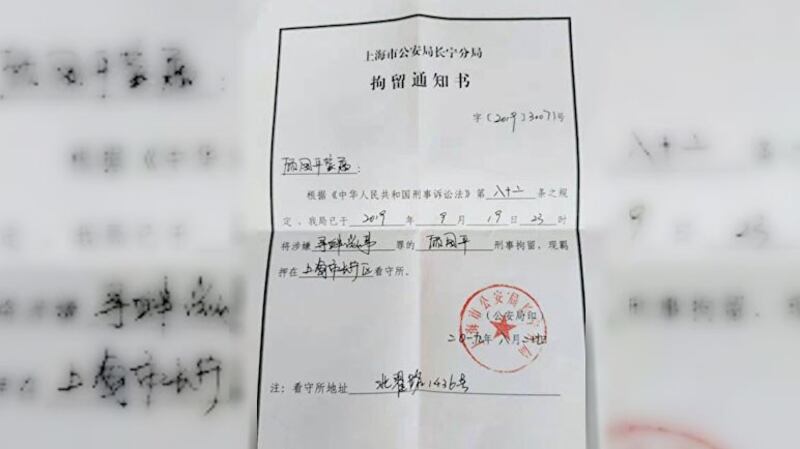 上海市公安局长宁分局
拘留通知书
字〔2019〕30071号
顾国平家属：
根据《中华人民共和国刑事诉讼法》第 八十二 条之规
定，我局已于 2019 年 9 月 19 日 23 时
将涉嫌 寻衅滋事 罪的 顾国平 刑事拘留，现羁
押在 上海市长宁区 看守所。
（公安局印）
上海市公安局长宁分局
二〇一九年
注：看守所地址 北翟路1436号